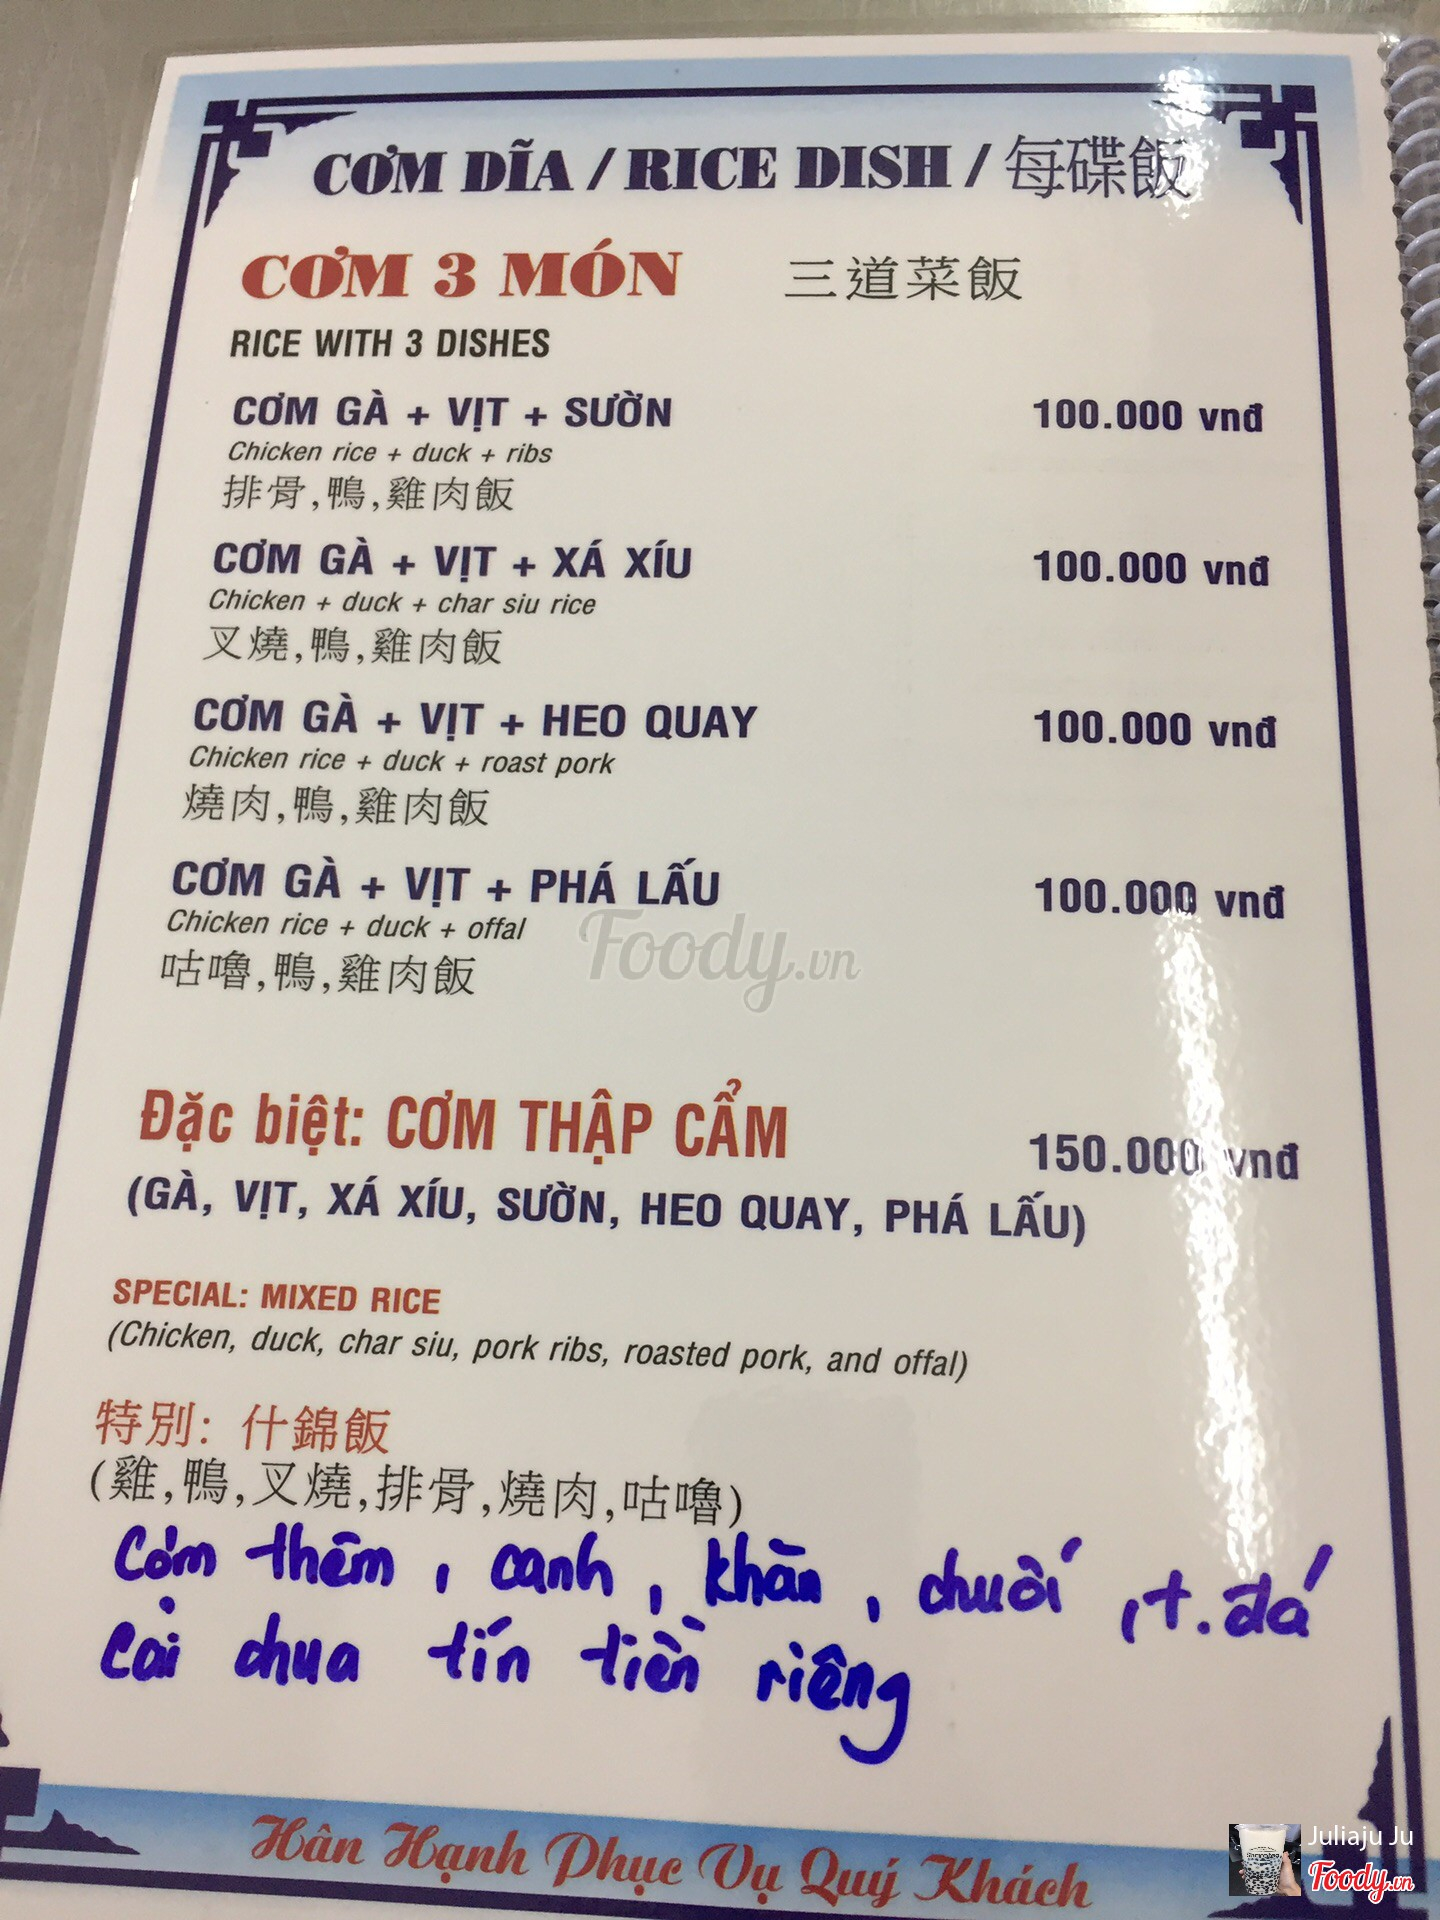 CƠM DĨA / RICE DISH / 每碟飯
CƠM 3 MÓN 三道菜飯
RICE WITH 3 DISHES
CƠM GÀ + VỊT + SƯỜN 100.000 vnđ
Chicken rice + duck + ribs
排骨,鴨,雞肉飯
CƠM GÀ + VỊT + XÁ XÍU 100.000 vnđ
Chicken + duck + char siu rice
叉燒,鴨,雞肉飯
CƠM GÀ + VỊT + HEO QUAY 100.000 vnđ
Chicken rice + duck + roast pork
燒肉,鴨,雞肉飯
CƠM GÀ + VỊT + PHÁ LẤU 100.000 vnđ
Chicken rice + duck + offal
咕嚕,鴨,雞肉飯
Foody.vn
Đặc biệt: CƠM THẬP CẨM 150.000 vnđ
(GÀ, VỊT, XÁ XÍU, SƯỜN, HEO QUAY, PHÁ LẤU)
SPECIAL: MIXED RICE
(Chicken, duck, char siu, pork ribs, roasted pork, and offal)
特別: 什錦飯
(雞,鴨,叉燒,排骨,燒肉,咕嚕)
Cơm thêm, canh, khăn, chuối, t. đá
Cải chua tín tiền riêng
Hân Hạnh Phục Vụ Quý Khách
Juliaju Ju
Foody.vn